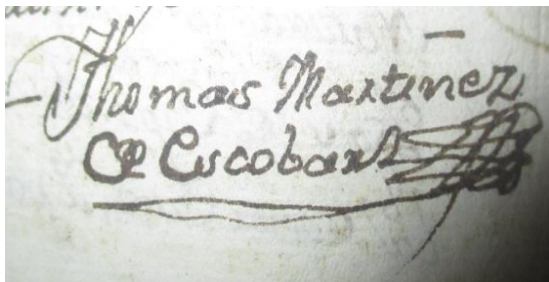 Thomas Martinez
de Escobar